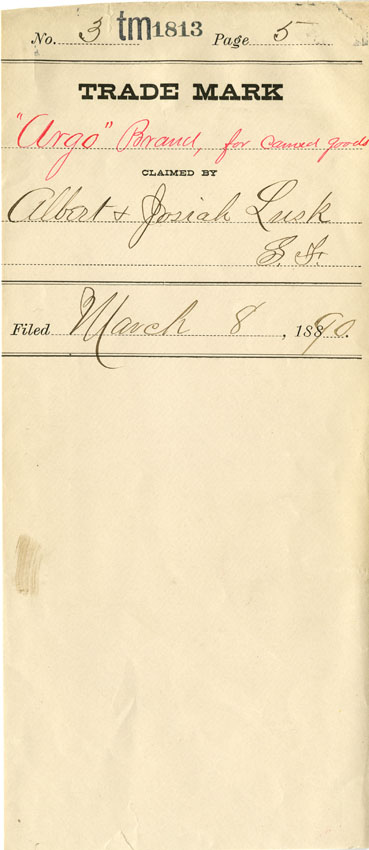 No. 3 tm1813 Page 5
TRADE MARK
"Argo" Brand, for canned goods
CLAIMED BY
Albert & Josiah Lusk
S. F.
Filed March 8, 1890.